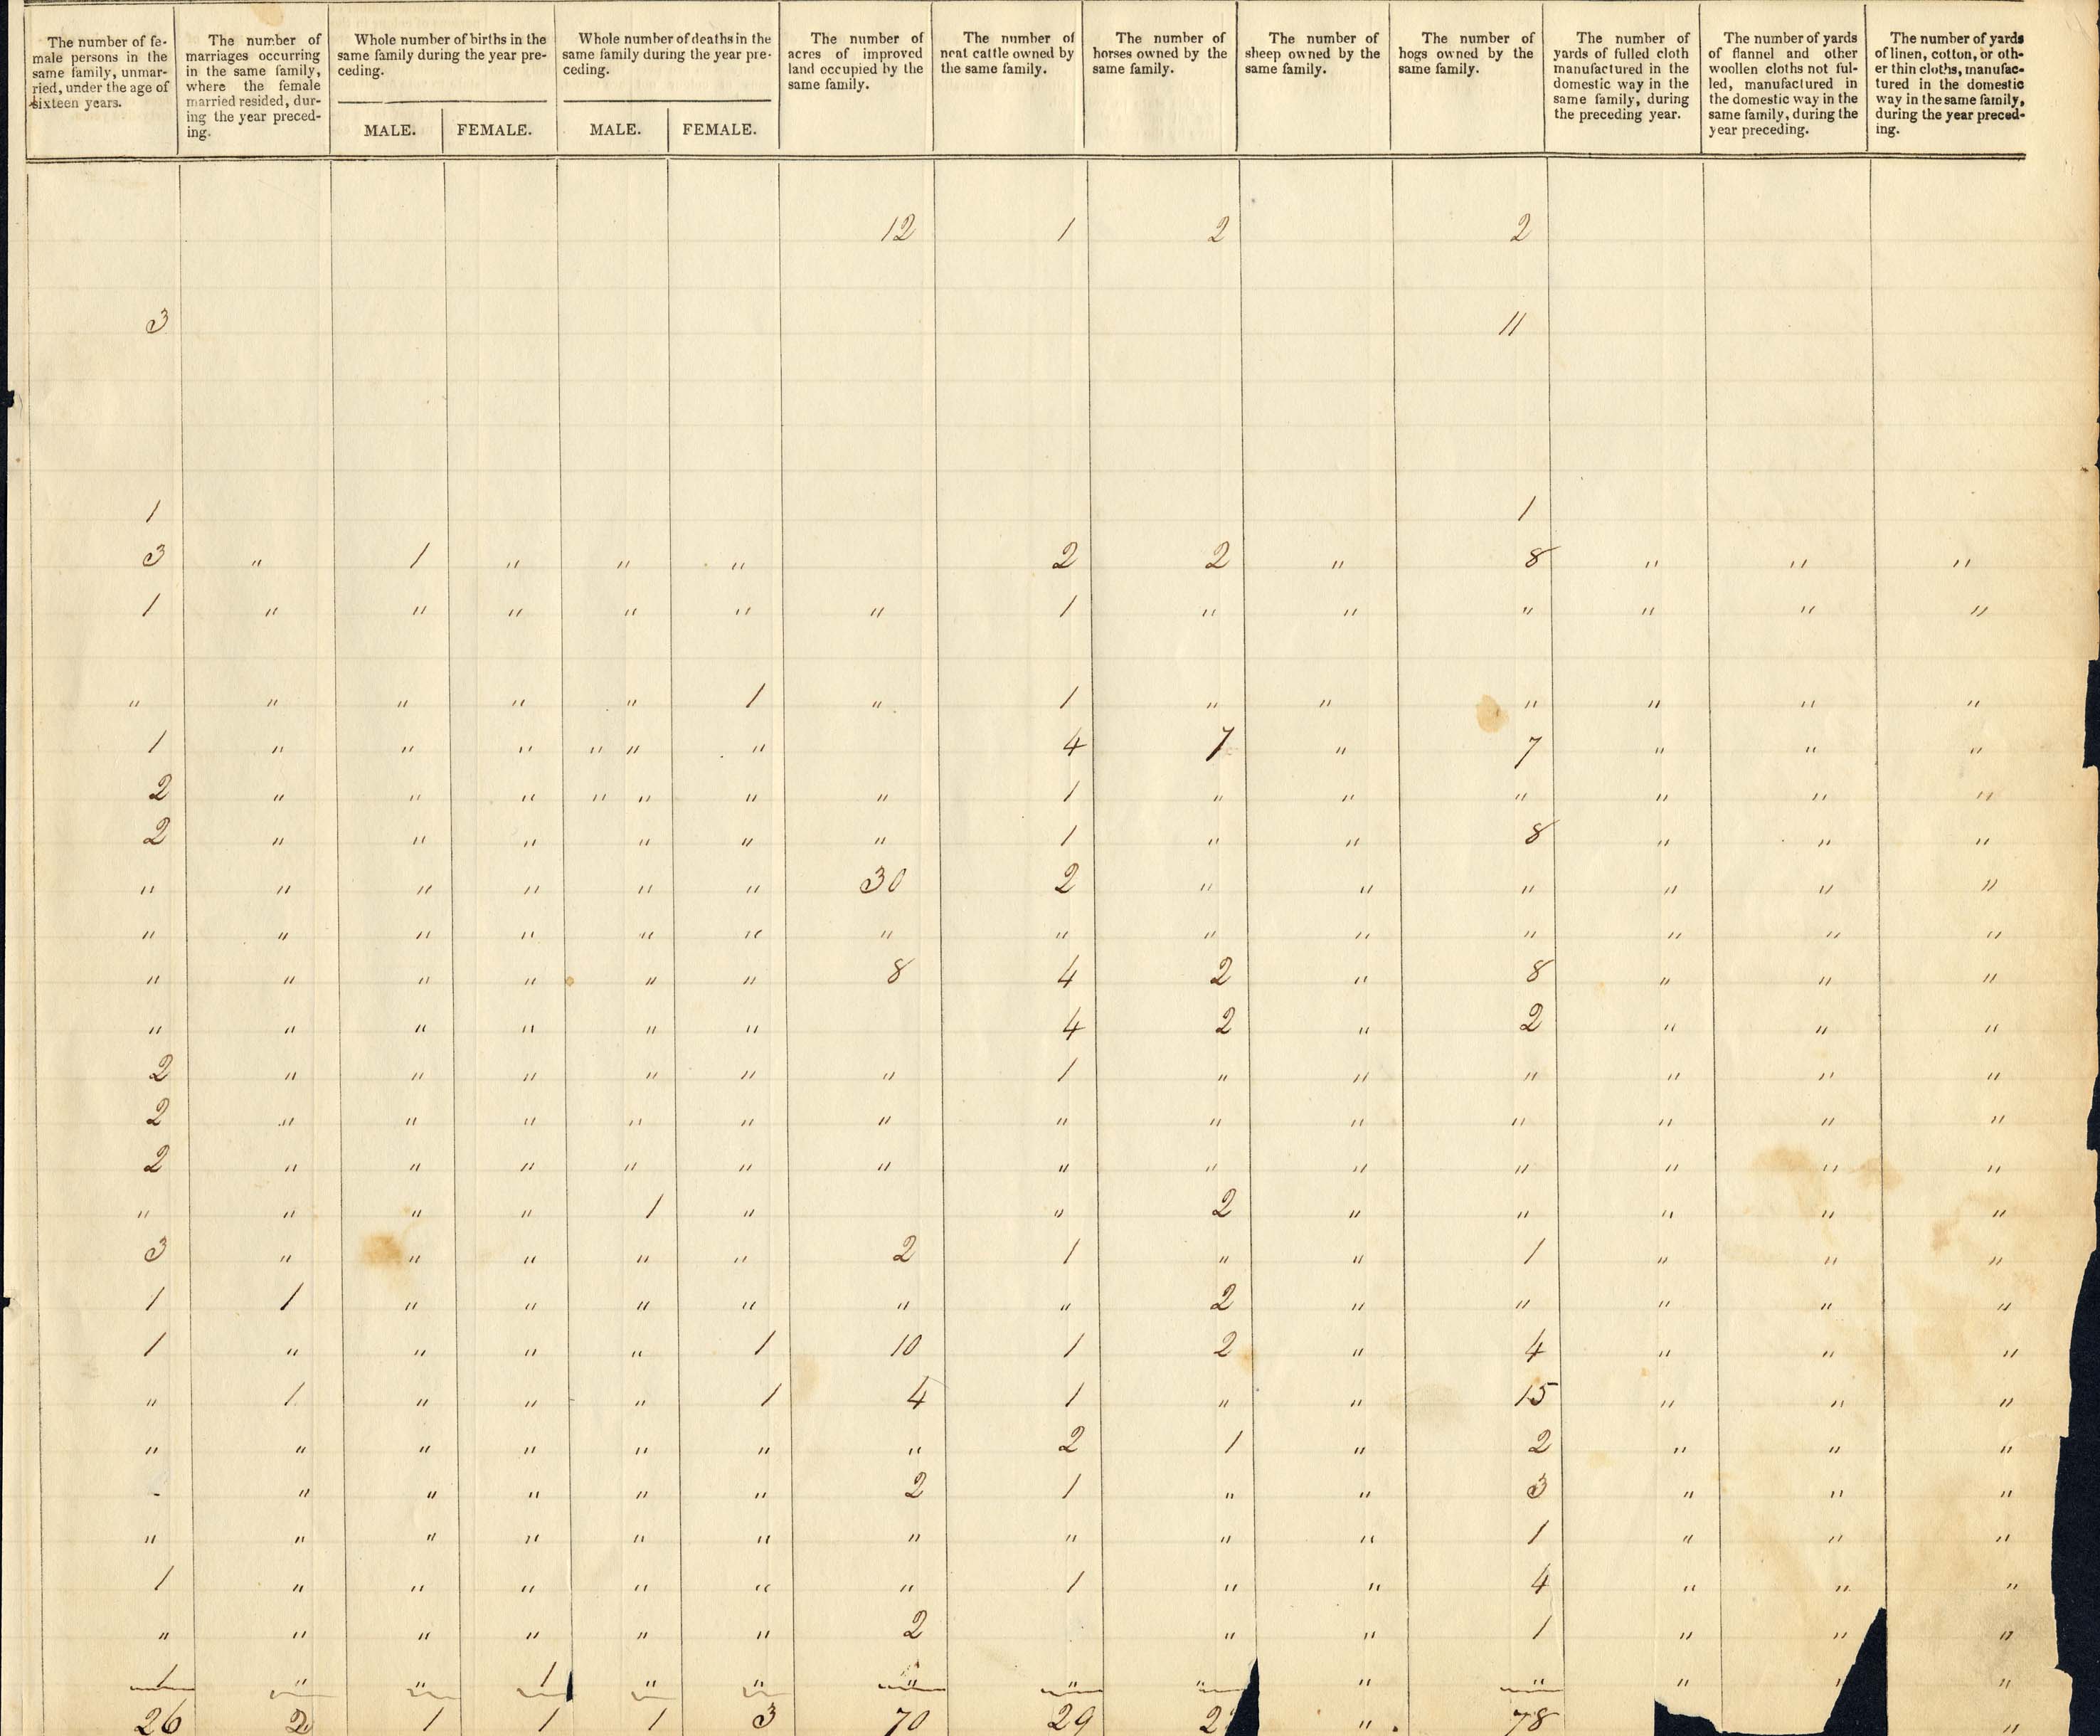 The number of fe-
male persons in the
same family, unmar-
ried, under the age of
sixteen years.
The number of
marriages occurring
in the same family,
where the female
married resided, dur-
ing the year preced-
ing.
Whole number of births in the
same family during the year pre-
ceding.
MALE. FEMALE.
Whole number of deaths in the
same family during the year pre-
ceding.
MALE. FEMALE.
The number of
acres of improved
land occupied by the
same family.
The number of
neat cattle owned by
the same family.
The number of
horses owned by the
same family.
The number of
sheep owned by the
same family.
The number of
hogs owned by the
same family.
The number of
yards of fulled cloth
manufactured in the
domestic way in the
same family, during
the preceding year.
The number of yards
of flannel and other
woollen cloths not ful-
led, manufactured in
the domestic way in the
same family, during the
year preceding.
The number of yards
of linen, cotton, or oth-
er thin cloths, manufac-
tured in the domestic
way in the same family,
during the year preced-
ing.
12 1 2 2
3 11
1 1
3 " 1 " " " 2 2 " 8 " " "
1 " " " " " " 1 " " " " " "
" " " " " 1 " 1 " " " " " "
1 " " " " " " 4 7 " 7 " " "
2 " " " " " " " 1 " " " " " "
2 " " " " " " 1 " " 8 " " "
" " " " " " 30 2 " " " " " "
" " " " " " " " " " " " " "
" " " " " " 8 4 2 " 8 " " "
" " " " " " 4 2 " 2 " " "
2 " " " " " " 1 " " " " " "
2 " " " " " " " " " " " " "
2 " " " " " " " " " " " " "
" " " " 1 " " 2 " " " " "
3 " " " " " 2 1 " " 1 " " "
1 1 " " " " " " 2 " " " " "
1 " " " " 1 10 1 2 " 4 " " "
" 1 " " " 1 4 1 " " 15 " " "
" " " " " " " 2 1 " 2 " " "
- " " " " " 2 1 " " 3 " " "
" " " " " " " " " " 1 " " "
1 " " " " " " 1 " " 4 " " "
" " " " " " 2 " " 1 " " "
1 " " 1 " " " " " " " " " "
26 2 1 1 1 3 70 29 " 78 "